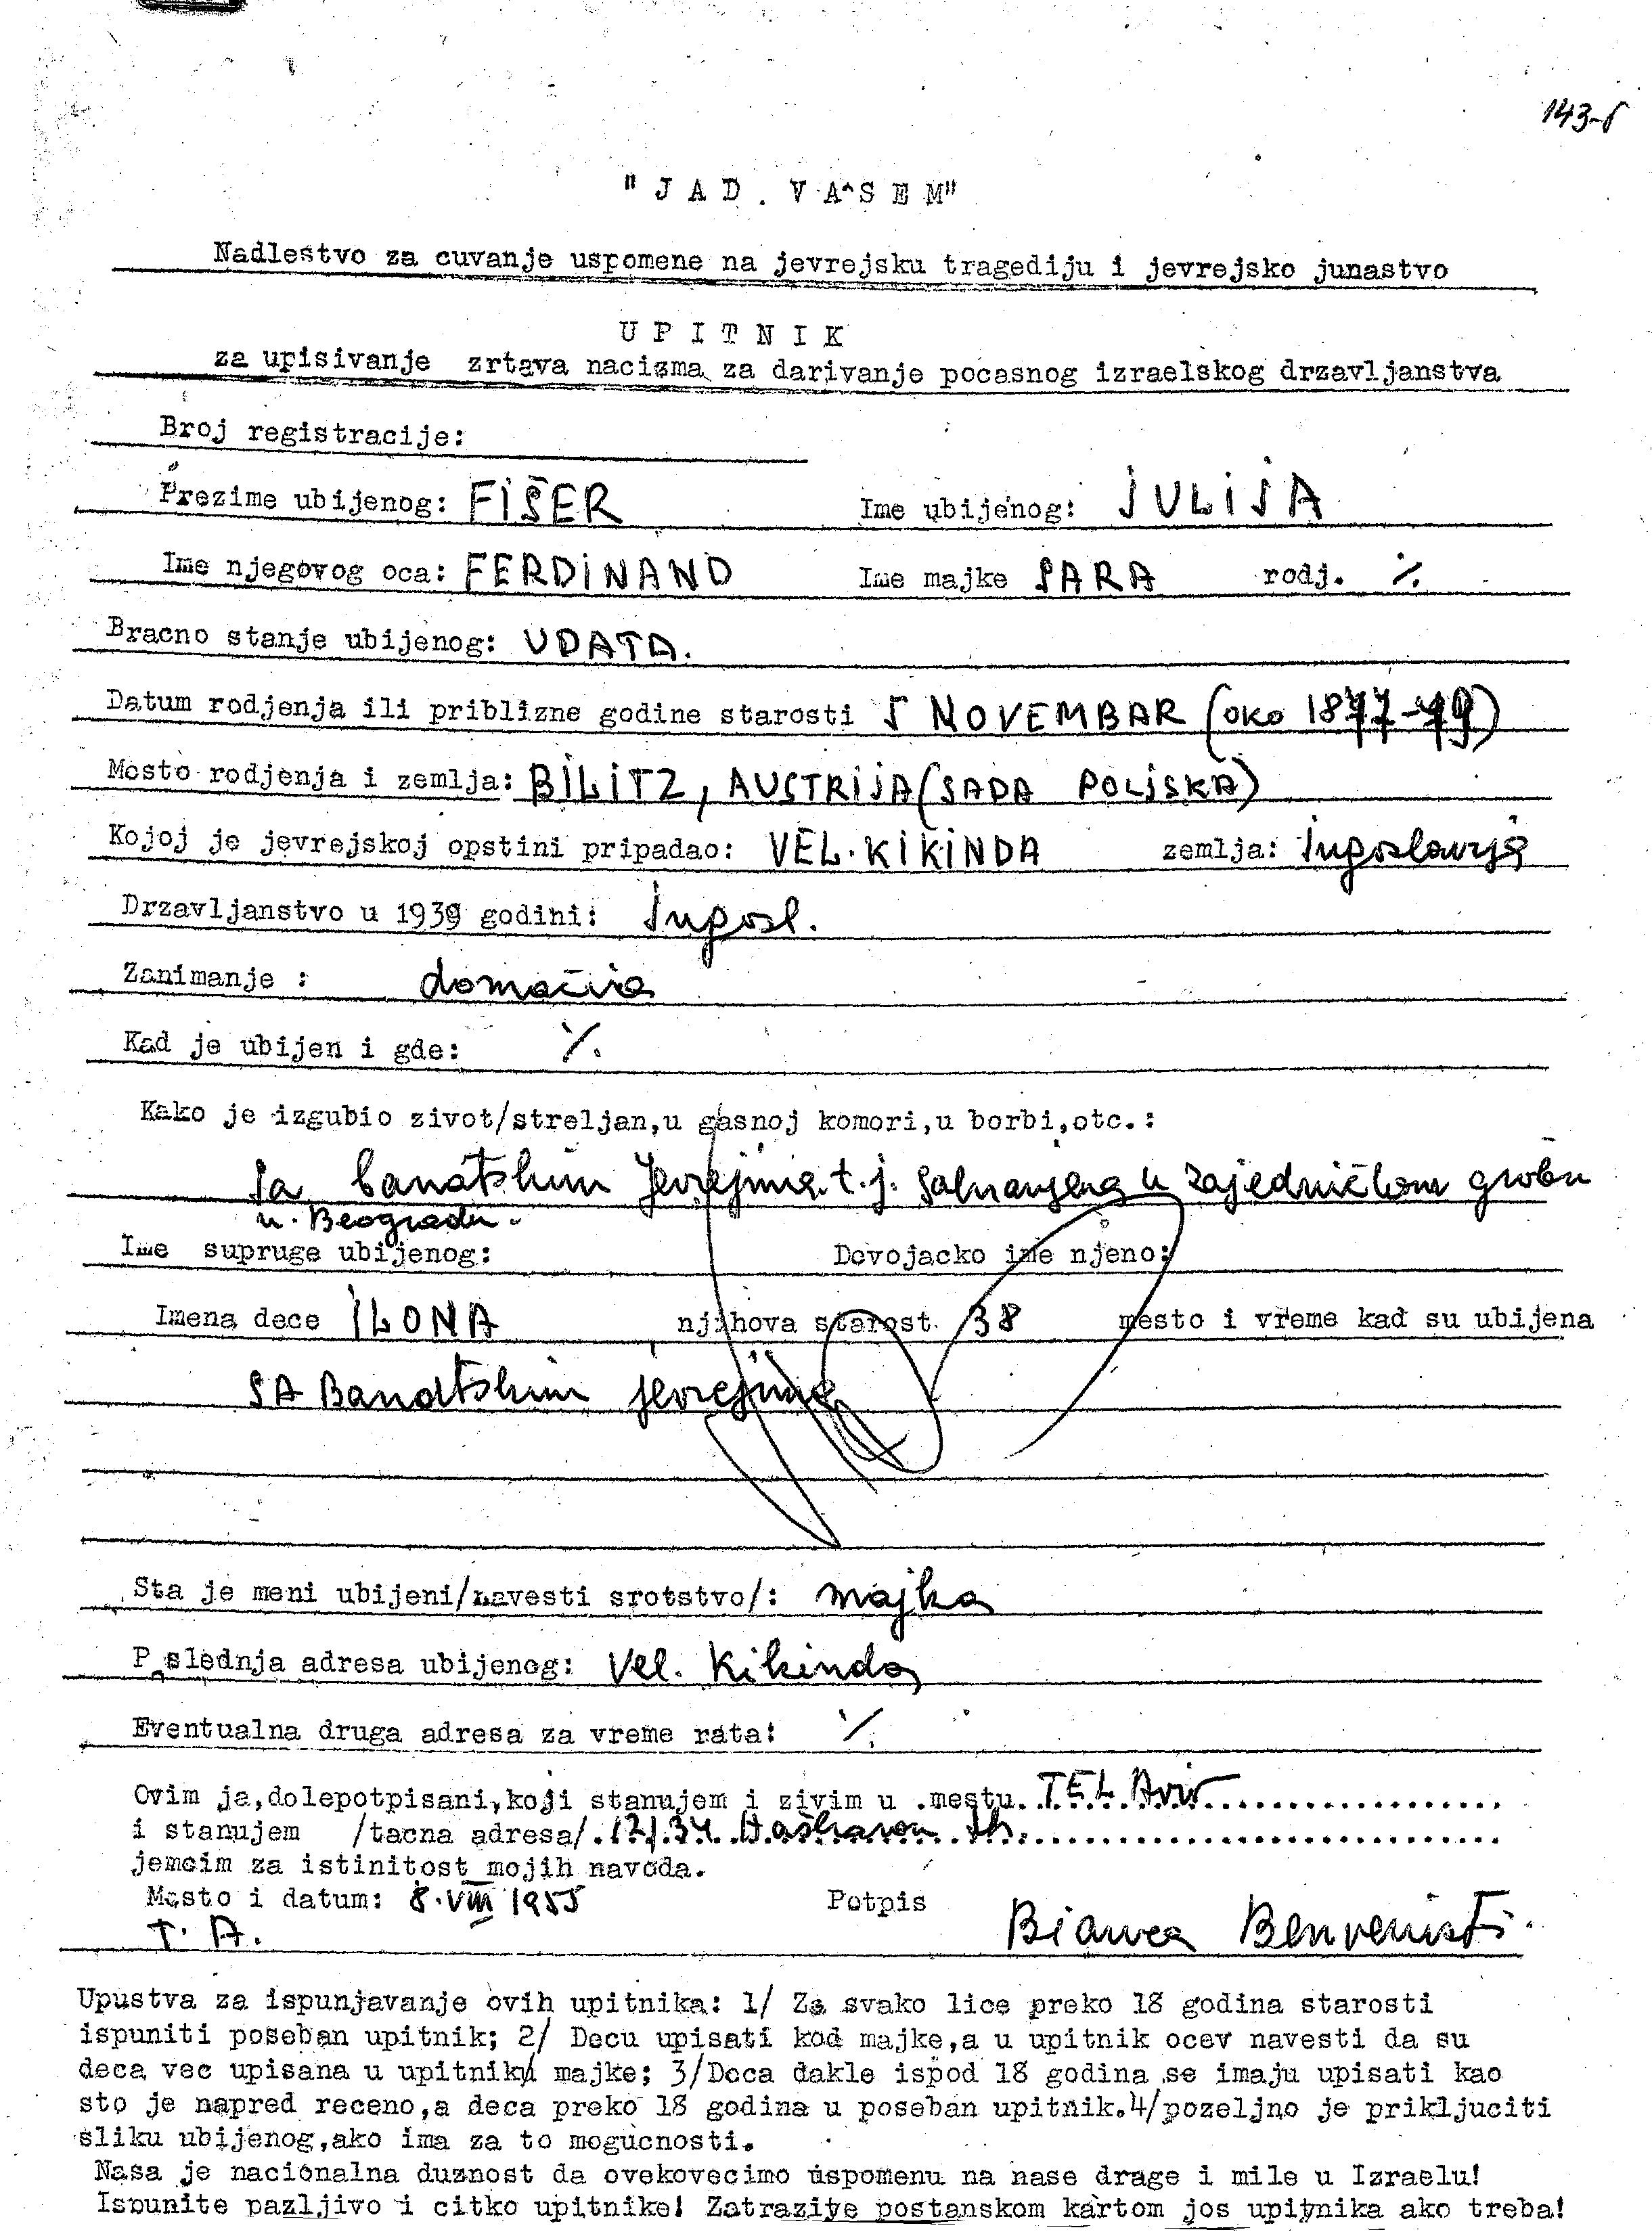 143-
"JAD. VA^SEM"
Nadlestvo za cuvanje uspomene na jevrejsku tragediju i jevrejsko junastvo
UPITNIK
za upisivanje zrtava nacizma za darivanje pocasnog izraelskog drzavljanstva
Broj registracije:
Prezime ubijenog: FIŠER Ime ubijenog: JULIJA
Ime njegovog oca: FERDINAND Ime majke SARA rodj. ·/.
Bracno stanje ubijenog: UDATA.
Datum rodjenja ili priblizne godine starosti 5 NOVEMBAR (OKO 1877-79)
Mesto rodjenja i zemlja: BILITZ, AUSTRIJA (SADA POLJSKA)
Kojoj je jevrejskoj opstini pripadao: VEL. KIKINDA zemlja: Jugoslavija
Drzavljanstvo u 1939 godini: Jugosl.
Zanimanje : domaćica
Kad je ubijen i gde: ·/.
Kako je izgubio zivot/streljan,u gasnoj komori,u borbi,etc.:
Sa banatskim Jevrejima. t.j. sahranjena u zajedničkom grobu
u. Beogradu.
Ime supruge ubijenog: Devojacko ime njeno:
Imena dece ILONA njihova starost 38 mesto i vreme kad su ubijena
SA Banatskim jevrejima
Sta je meni ubijeni/navesti srotstvo/: majka
Poslednja adresa ubijenog: Vel. Kikinda
Eventualna druga adresa za vreme rata: ·/.
Ovim ja,dolepotpisani,koji stanujem i zivim u mestu. TEL Aviv
i stanujem /tacna adresa/
jemcim za istinitost mojih navoda.
Mesto i datum: 8. VIII 1955 Potpis
T. A. Bianca Benvenisti.
Upustva za ispunjavanje ovih upitnika: 1/ Za svako lice preko 18 godina starosti
ispuniti poseban upitnik; 2/ Decu upisati kod majke,a u upitnik ocev navesti da su
deca vec upisana u upitniku majke; 3/Deca dakle ispod 18 godina se imaju upisati kao
sto je napred receno,a deca preko 18 godina u poseban upitnik.4/pozeljno je prikljuciti
sliku ubijenog,ako ima za to mogucnosti.
Nasa je nacionalna duznost da ovekovecimo uspomenu na nase drage i mile u Izraelu!
Ispunite pazljivo i citko upitnike! Zatrazite postanskom kartom jos upitnika ako treba!